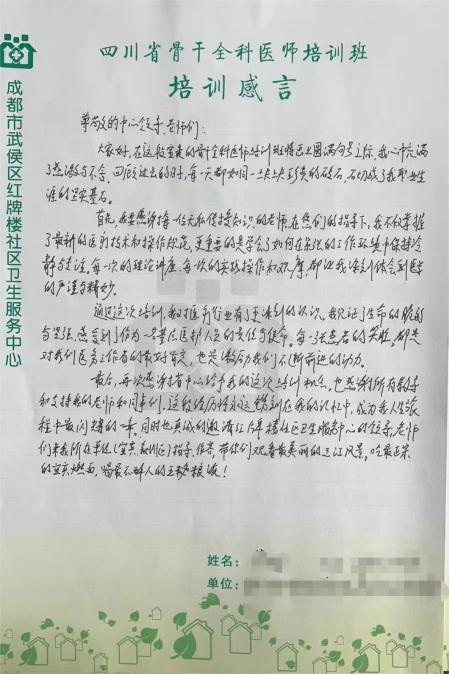 四川省骨干全科医师培训班
培训感言
成都市武侯区红牌楼社区卫生服务中心
尊敬的中心领导、老师们：
大家好，在这段宝贵的骨干全科医师培训班将画上圆满句号之际，我心中充满
了感激与不舍。回顾过去的时，每一天都如同一块块坚实的砖石，铺成了我职业生
涯的坚实基石。
首先，我要感谢每一位无私传授知识的老师，在您们的指导下，我不仅掌握
了最新的医疗技术和操作规范，更重要的是学会了如何在紧张的工作环境中保持冷
静与专注，每一次的理论讲座、每一次的实践操作和观摩，都让我深刻体会到医学
的严谨与精妙。
通过这次培训，我对医疗行业有了更深刻的认识。我见证了生命的脆弱
与坚强，感受到了作为一名基层医护人员的责任与使命。每一张患者的笑脸，都是
对我们医务工作者的最好肯定，也是激励我们不断前进的动力。
最后，再次感谢省中心给予我的这次培训机会，也感谢所有教导
和支持我的老师和同事们。这段经历将永远镌刻在我的记忆中，成为我人生旅
程中最闪耀的一章。同时也真诚的邀请红牌楼社区卫生服务中心的领导、老师
们来我所在单位（宜宾叙州区）指导、作客，带你们观看最美丽的三江风景，吃最正宗
的宜宾燃面，喝最醉人的五粮液！
姓名：
单位：